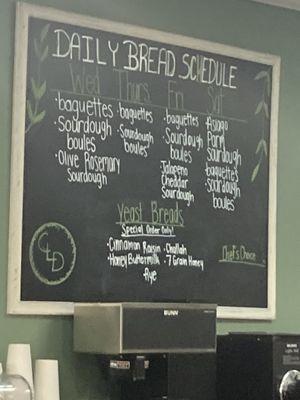 DAILY BREAD SCHEDULE
Wed Thurs Fri Sat
·baguettes
·Sourdough
boules
·Olive Rosemary
Sourdough
·baguettes
·Sourdough
boules
·baguettes
·Sourdough
boules
Jalapeno
Cheddar
Sourdough
Asiago
Parm
Sourdough
·baguettes
·sourdough
boules
Yeast Breads
Special Order Only!
·Cinnamon Raisin ·Challah
·Honey Buttermilk ·7 Grain Honey
Rye
Chef's Choice
BUNN
BUNN